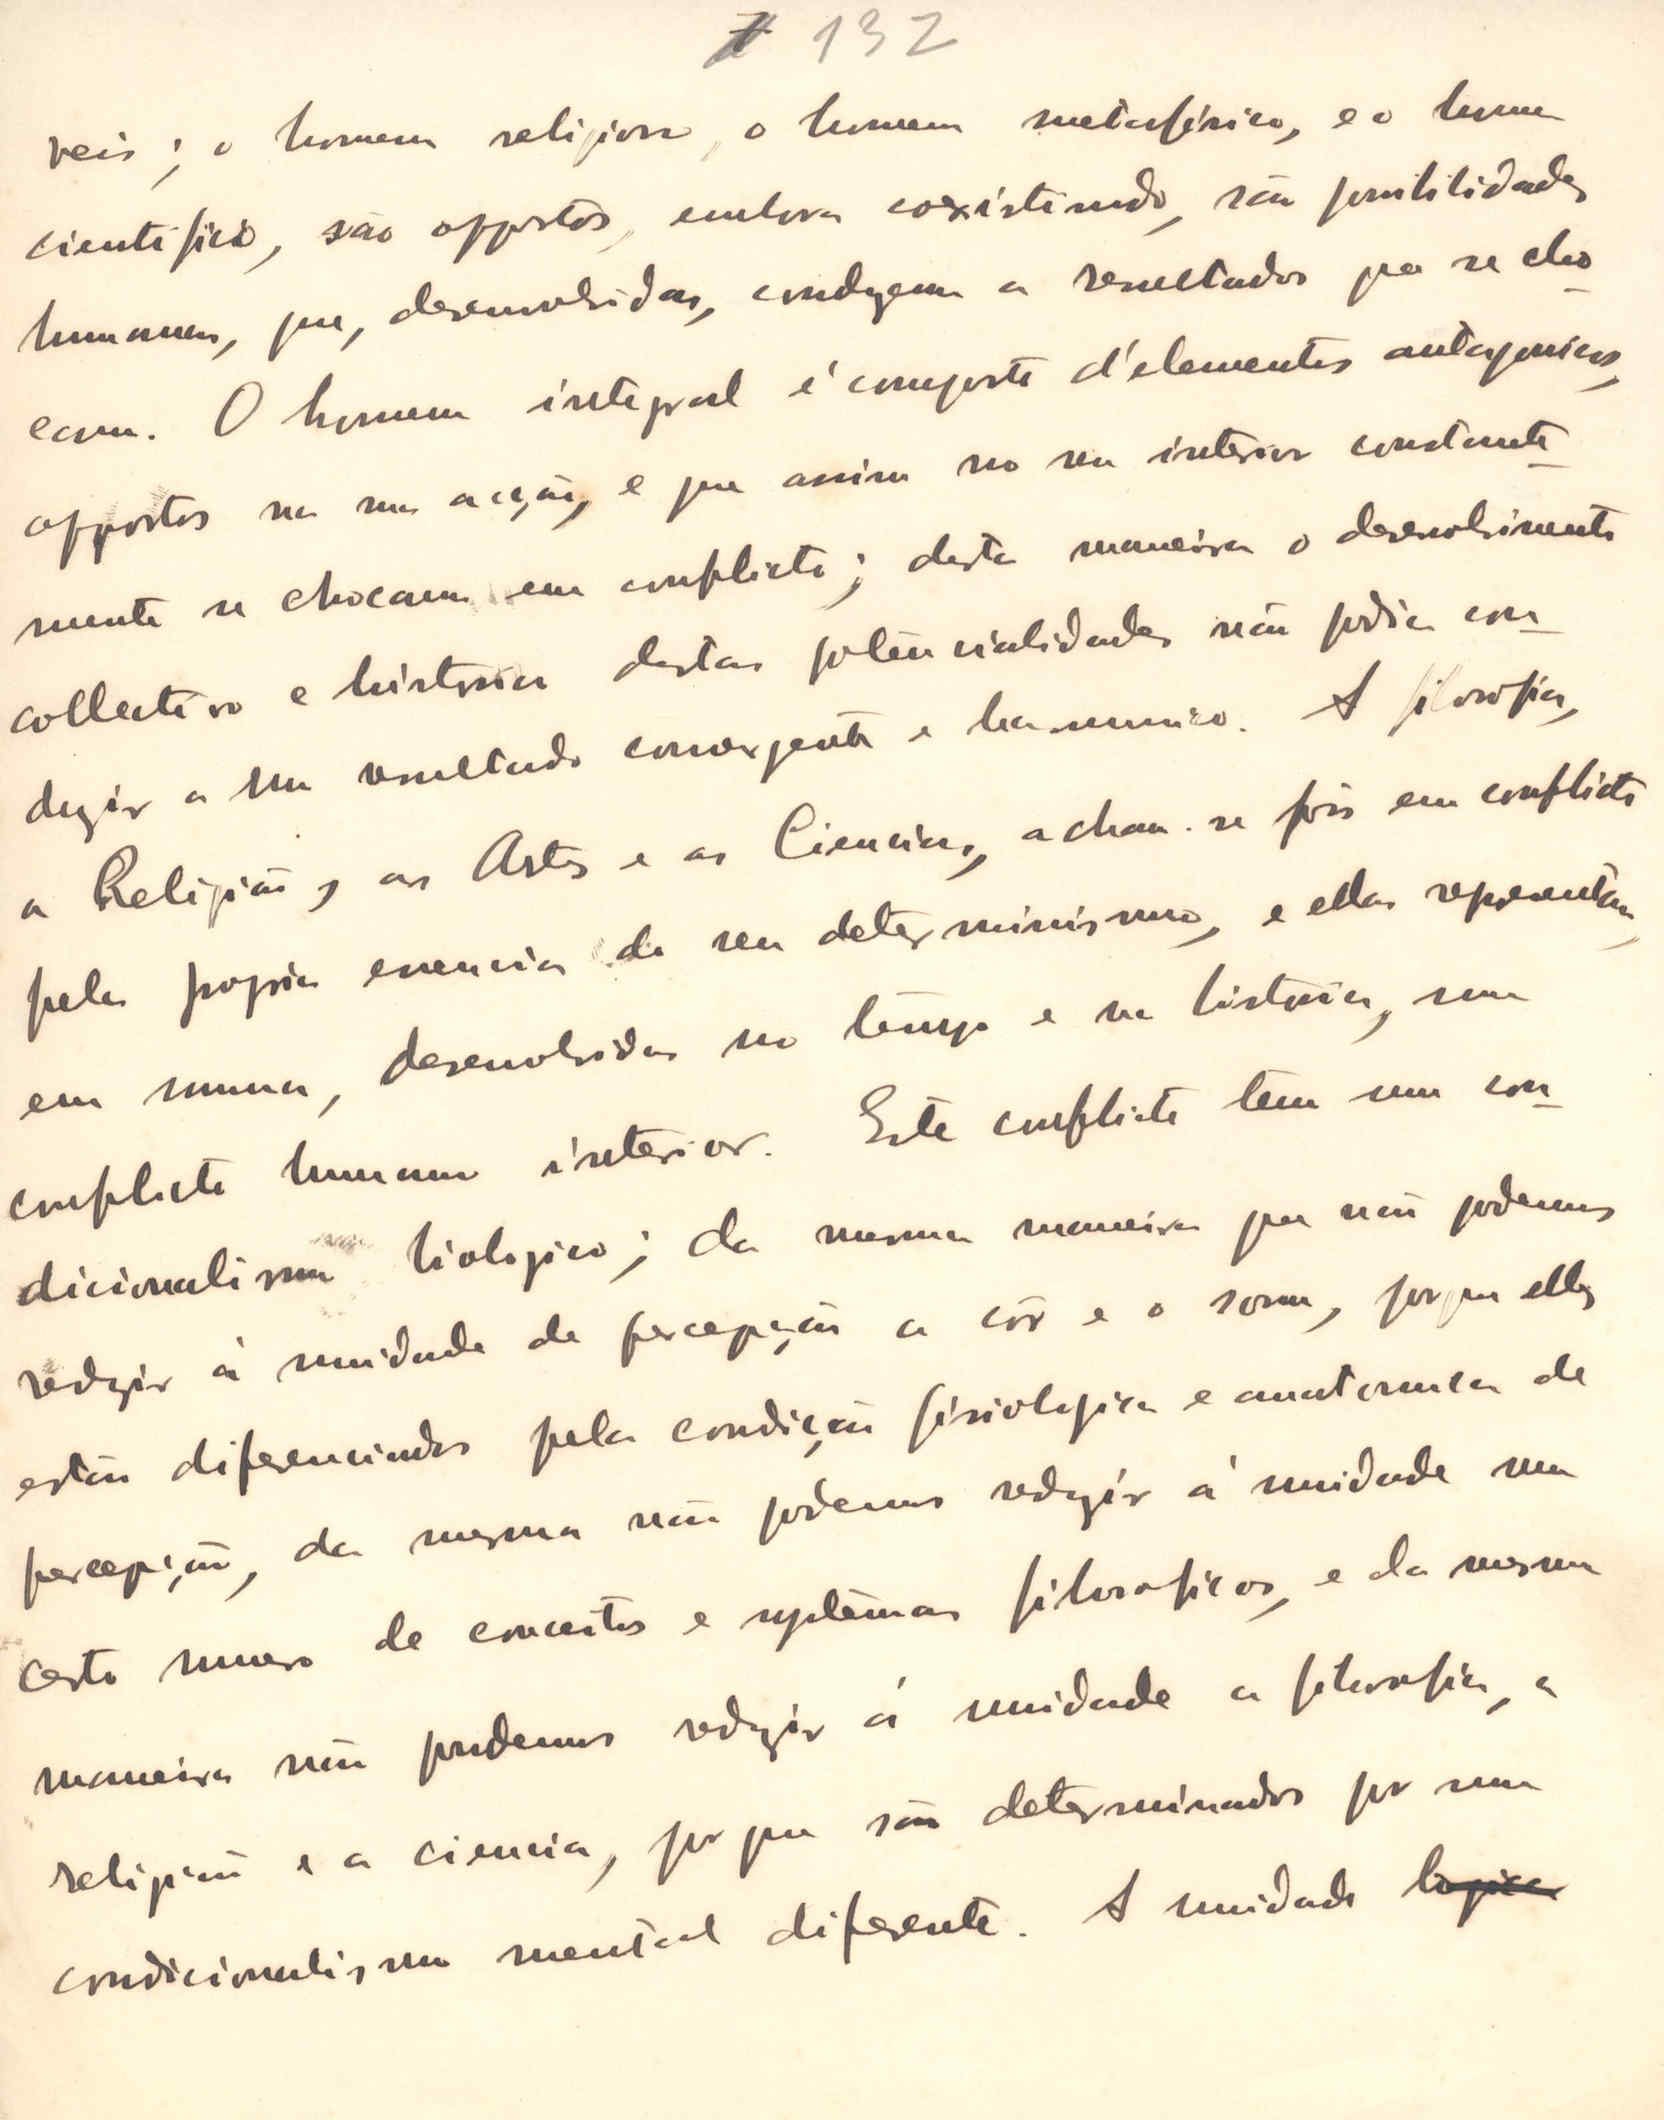 132
veis; o homem religioso, o homem metafisico, e o homem
cientifico, são oppostos, embora coexistindo, são possibilidades
humanas, que, desenvolvidas, conduzem a resultados que se cho-
cam. O homem integral é composto d'elementos antagonicos,
oppostos na sua acção, e que assim no seu interior constante-
mente se chocam em conflicto; desta maneira o desenvolvimento
collectivo e historico destas potencialidades não podia con-
duzir a um resultado convergente e harmonico. A filosofia,
a Religião, as Artes e as Ciencias, acham-se pois em conflicto
pela propria essencia do seu determinismo, e ellas representam,
em summa, desenvolvidas no tempo e na historia, um
conflicto humano interior. Este conflicto tem um con-
dicionalismo biologico; da mesma maneira que não podemos
reduzir á unidade de percepção a côr e o som, porque elles
estão diferenciados pela condição fisiologica e anatomica de
percepção, da mesma não podemos reduzir á unidade um
certo numero de conceitos e systemas filosoficos, e da mesma
maneira não pudemos reduzir á unidade a filosofia, a
religião e a ciencia, por que são determinados por um
condicionalismo mental diferente. A unidade logica